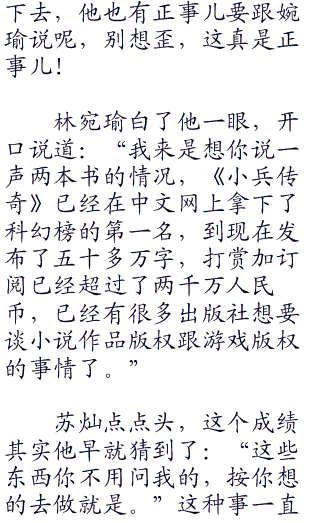 下去，他也有正事儿要跟婉
瑜说呢，别想歪，这真是正
事儿！
林宛瑜白了他一眼，开
口说道：“我来是想你说一
声两本书的情况，《小兵传
奇》已经在中文网上拿下了
科幻榜的第一名，到现在发
布了五十多万字，打赏加订
阅已经超过了两千万人民
币，已经有很多出版社想要
谈小说作品版权跟游戏版权
的事情了。”
苏灿点点头，这个成绩
其实他早就猜到了：“这些
东西你不用问我的，按你想
的去做就是。”这种事一直